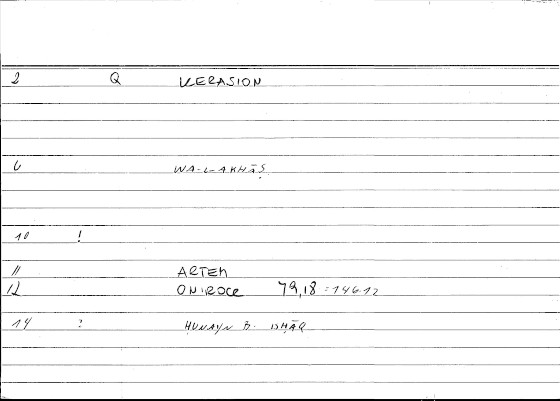 2 Q KERASION
6 WA-L-AKHĀṢ
10 !
11 ARTEM
12 ONIROCR 79,18 = 146.12
14 : ḤUNAYN B. ISḤĀQ